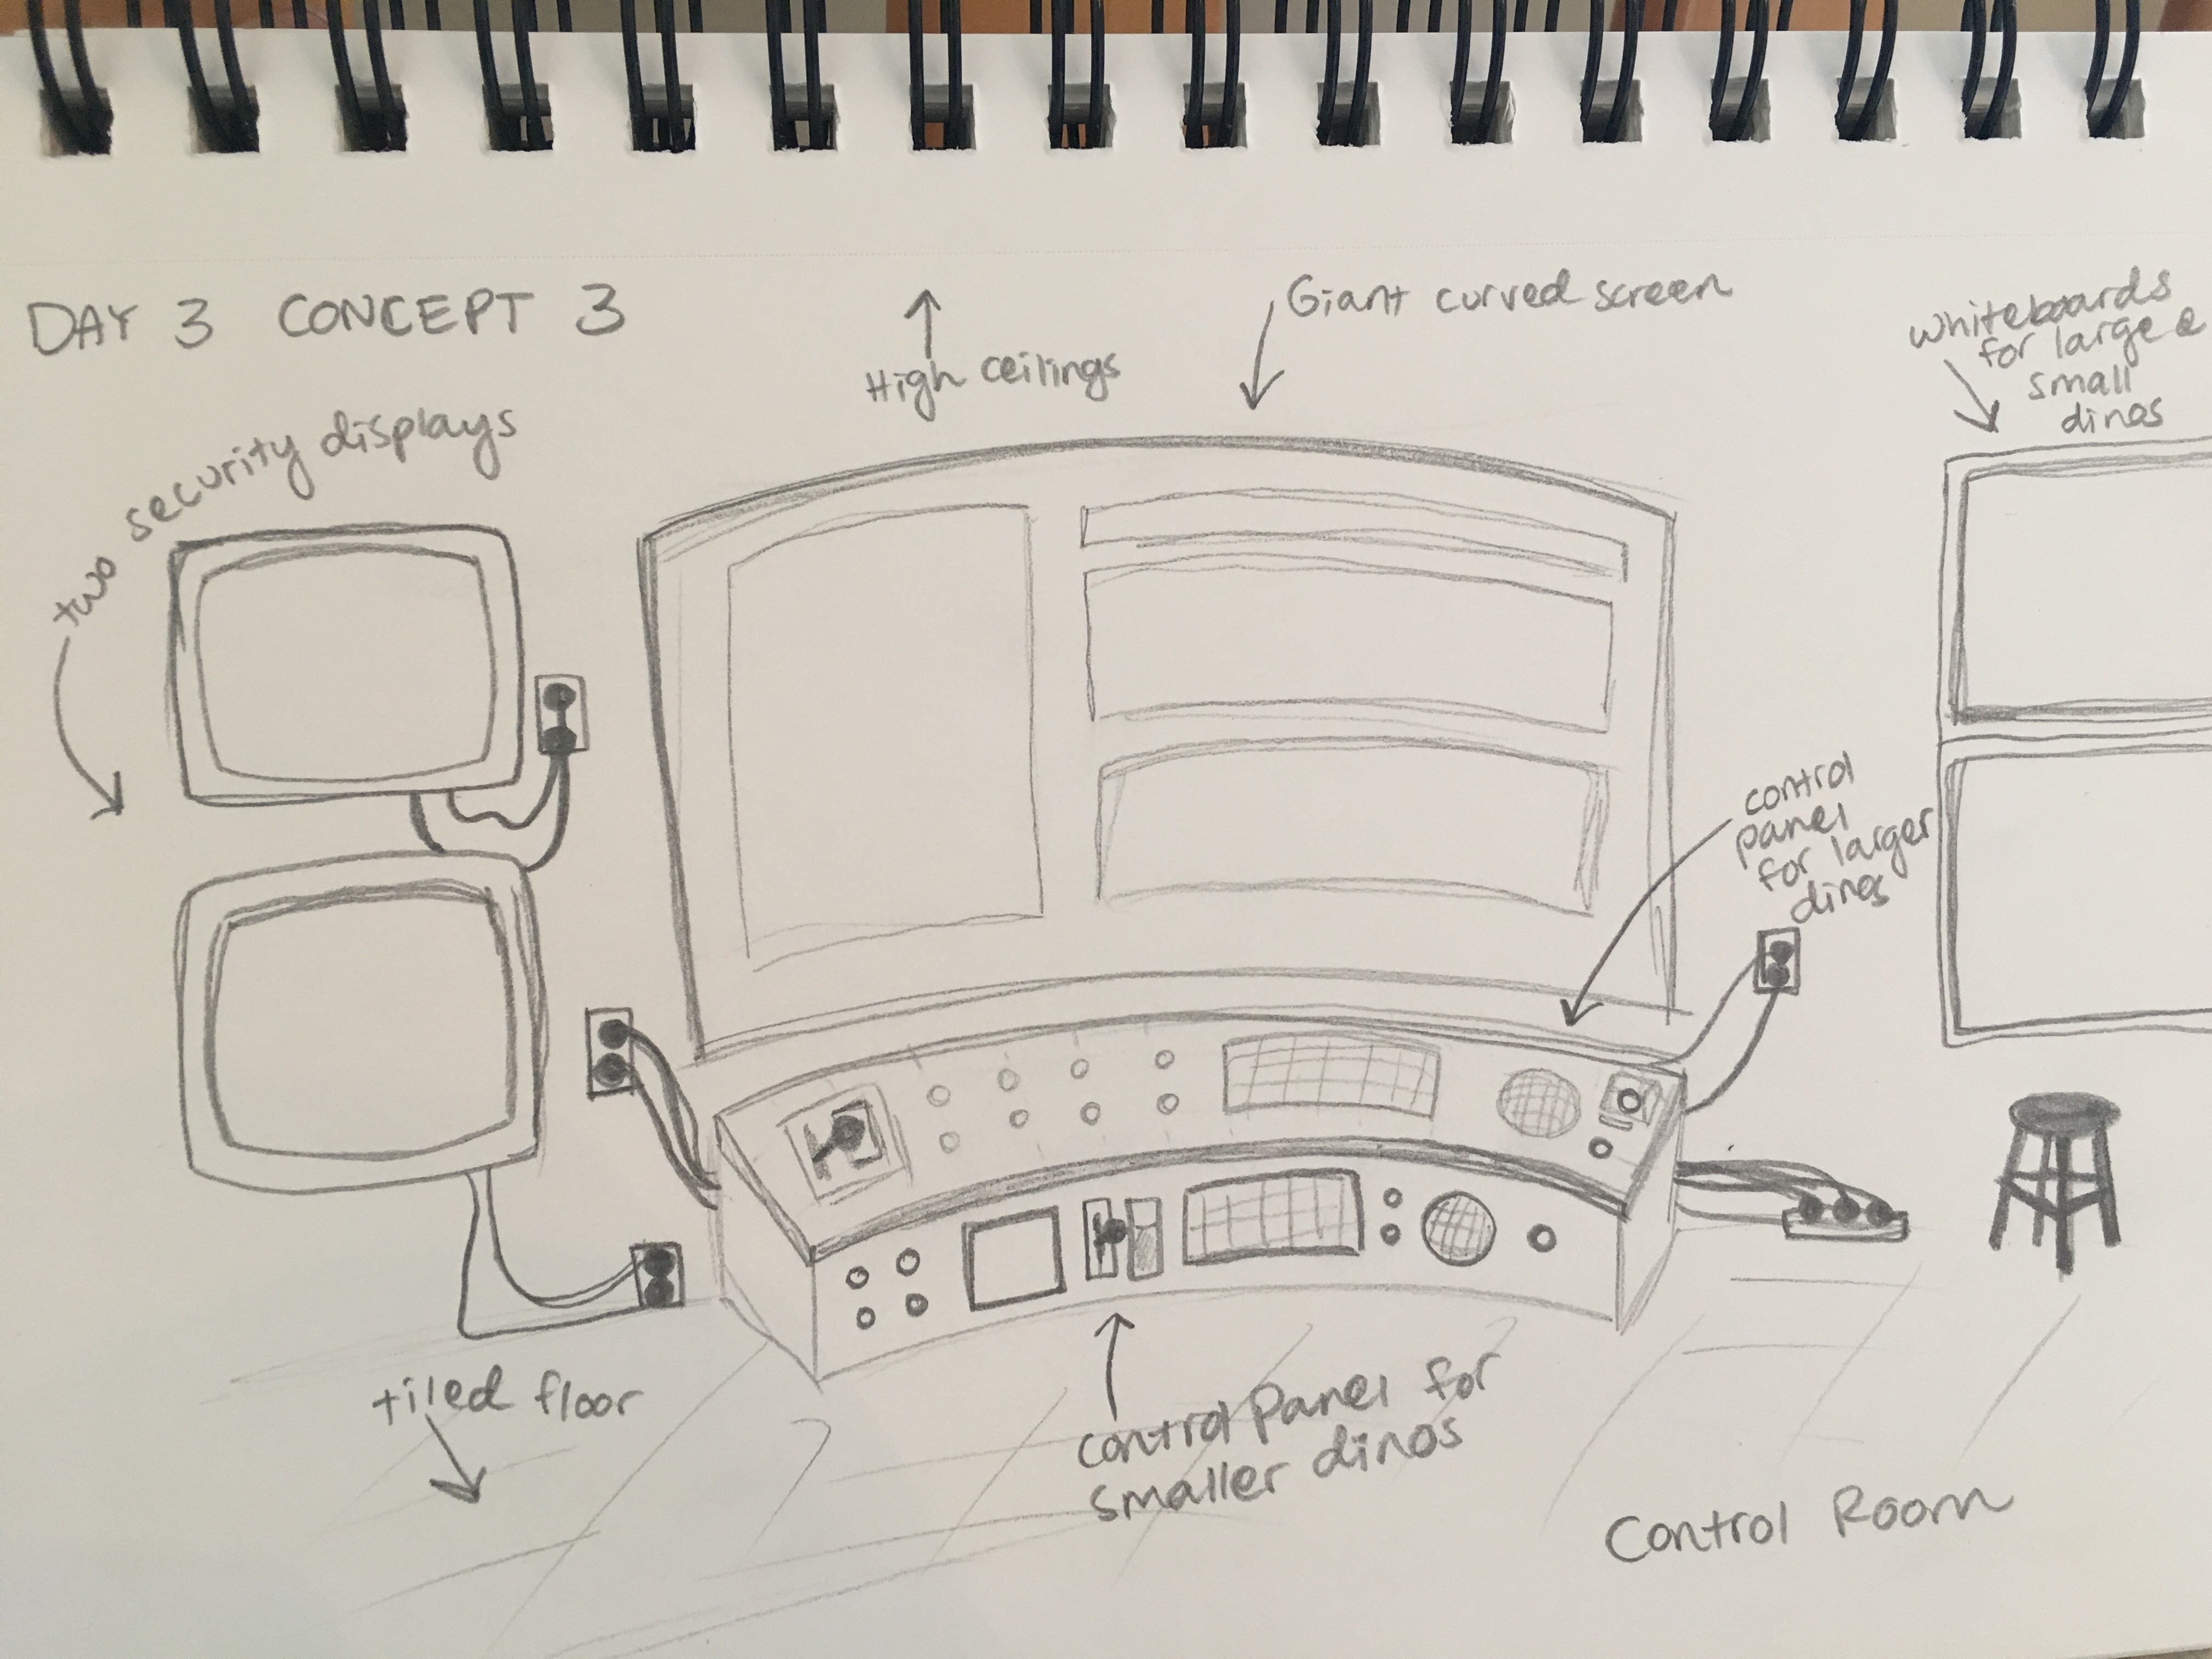 DAY 3 CONCEPT 3
High ceilings
Giant curved screen
whiteboards
for large &
small
dinos
two security displays
control
panel
for larger
dinos
tiled floor
control Panel for
smaller dinos
Control Room